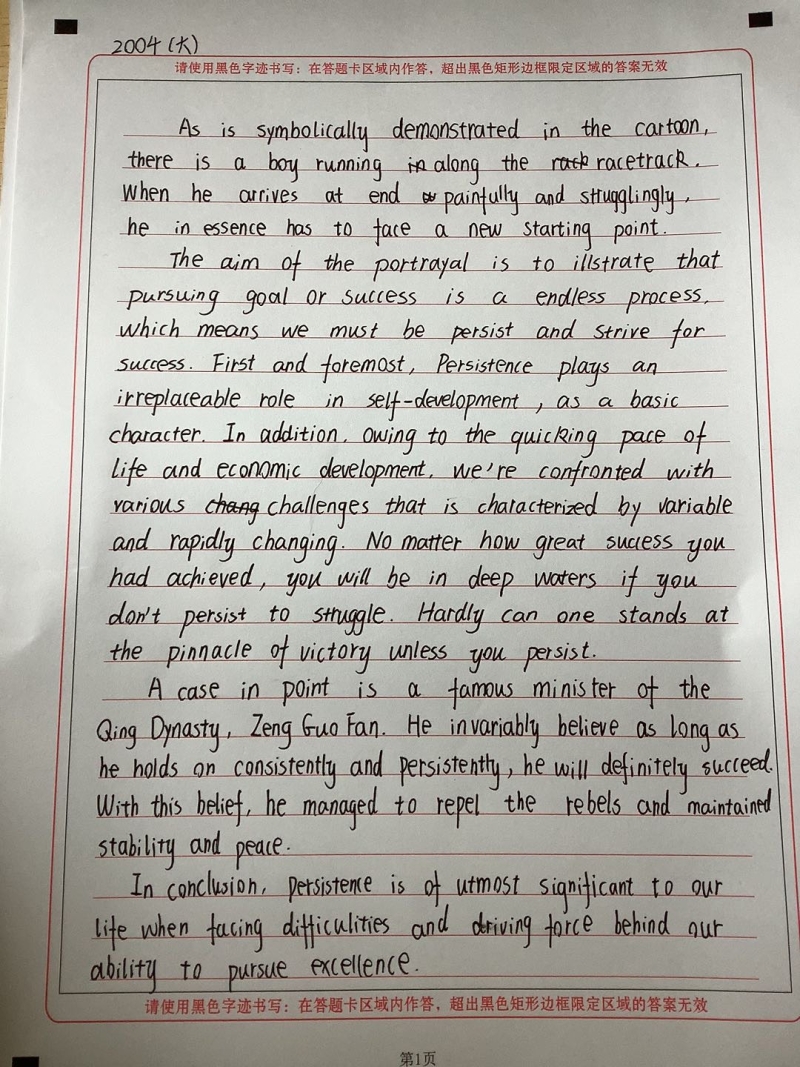 2004 (大)
请使用黑色字迹书写：在答题卡区域内作答，超出黑色矩形边框限定区域的答案无效
As is symbolically demonstrated in the cartoon,
there is a boy running in along the rack racetrack.
When he arrives at end painfully and strugglingly,
he in essence has to face a new starting point.
The aim of the portrayal is to illstrate that
pursuing goal or success is a endless process,
which means we must be persist and strive for
success. First and foremost, Persistence plays an
irreplaceable role in self-development, as a basic
character. In addition, owing to the quicking pace of
life and economic development, we're confronted with
various chang challenges that is characterized by variable
and rapidly changing. No matter how great success you
had achieved, you will be in deep waters if you
don't persist to struggle. Hardly can one stands at
the pinnacle of victory unless you persist.
A case in point is a famous minister of the
Qing Dynasty, Zeng Guo Fan. He invariably believe as long as
he holds on consistently and persistently, he will definitely succeed.
With this belief, he managed to repel the rebels and maintained
stability and peace.
In conclusion, persistence is of utmost significant to our
life when facing difficulities and driving force behind our
ability to pursue excellence.
请使用黑色字迹书写：在答题卡区域内作答，超出黑色矩形边框限定区域的答案无效
第1页